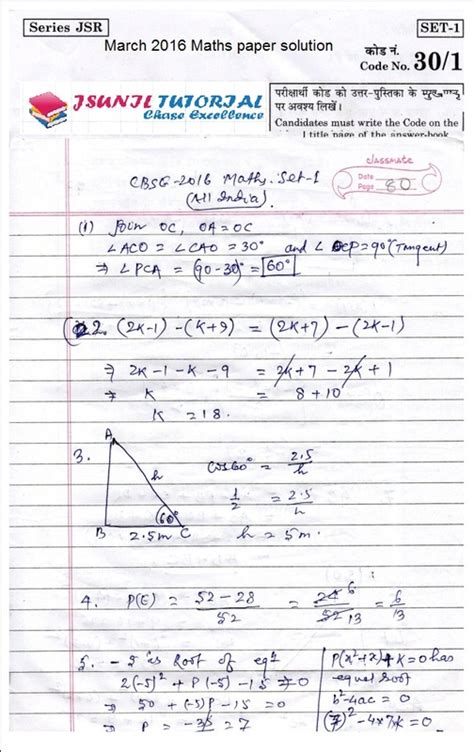 Series JSR
SET-1
March 2016 Maths paper solution
कोड नं.
Code No. 30/1
JSUNIL TUTORIAL
Chase Excellence
परीक्षार्थी कोड को उत्तर-पुस्तिका के मुख-पृष्ठ
पर अवश्य लिखें।
Candidates must write the Code on the
title page of the answer-book
classmate
Date
Page 80
CBSE-2016 Maths. Set-1
(All India)
(1) Join OC, OA = OC
∠ACO = ∠CAO = 30° and ∠OCP = 90° (Tangent)
⇒ ∠PCA = (90-30)° = 60°
Q2. (2K-1) - (K+9) = (2K+7) - (2K-1)
⇒ 2K - 1 - K - 9 = 2K + 7 - 2K + 1
⇒ K = 8 + 10
K = 18.
3.
A
h
60°
B 2.5m C
cos60° = 2.5/h
1/2 = 2.5/h
h = 5m.
4. P(E) = 52-28/52 = 24 6/52 13 = 6/13
5. -5 is Root of eqn
2(-5)² + P(-5) - 15 = 0
⇒ 50 + (-5)P - 15 = 0
⇒ P = -35 = 7
P(x²+x) + K = 0 has
equal root
b²-4ac = 0
(7)² - 4×7K = 0